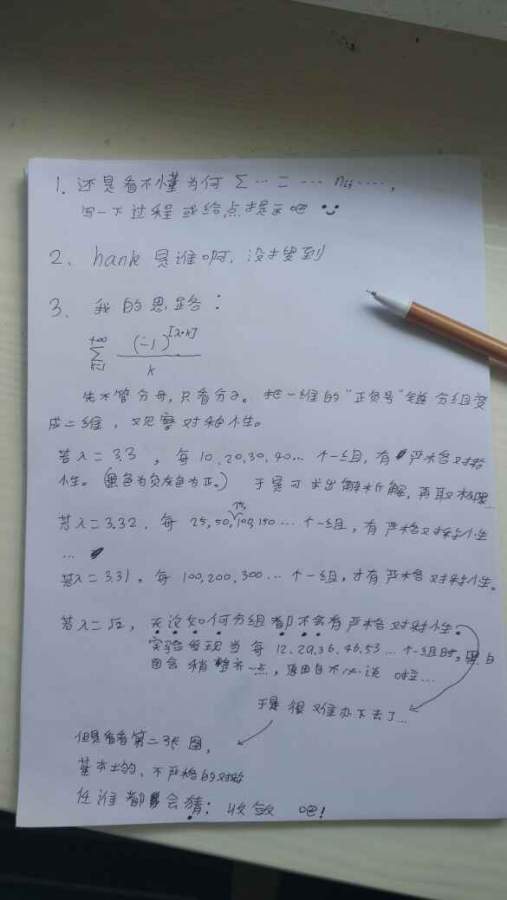 1. 还是看不懂为何 Σ … = … nij ….,
写一下过程或给点提示吧
2. hank 是谁啊, 没搜到
3. 我的思路:
+∞ (-1)^[λ·k]
Σ
k=1 k
先不管分母, 只看分子。把一维的“正负号”链分组变
成二维, 观察对称性。
若λ=3.3, 每 10,20,30,40… 个一组, 有严格对称
性。(黑色为负灰色为正。) 于是可求出解析解, 再取极限
若λ=3.32, 每 25,50,100,150… 个一组, 有严格对称性
…
若λ=3.31, 每 100,200,300… 个一组, 才有严格对称性。
若λ=√2, 无论如何分组都不会有严格对称性。
实验发现当每 12,29,36,46,53… 个一组时, 黑白
会稍整齐一点, 原因自不必说
于是很难办下去了…
但是看看第二张图,
基本上的、不严格的对称
任谁都会猜: 收敛吧!